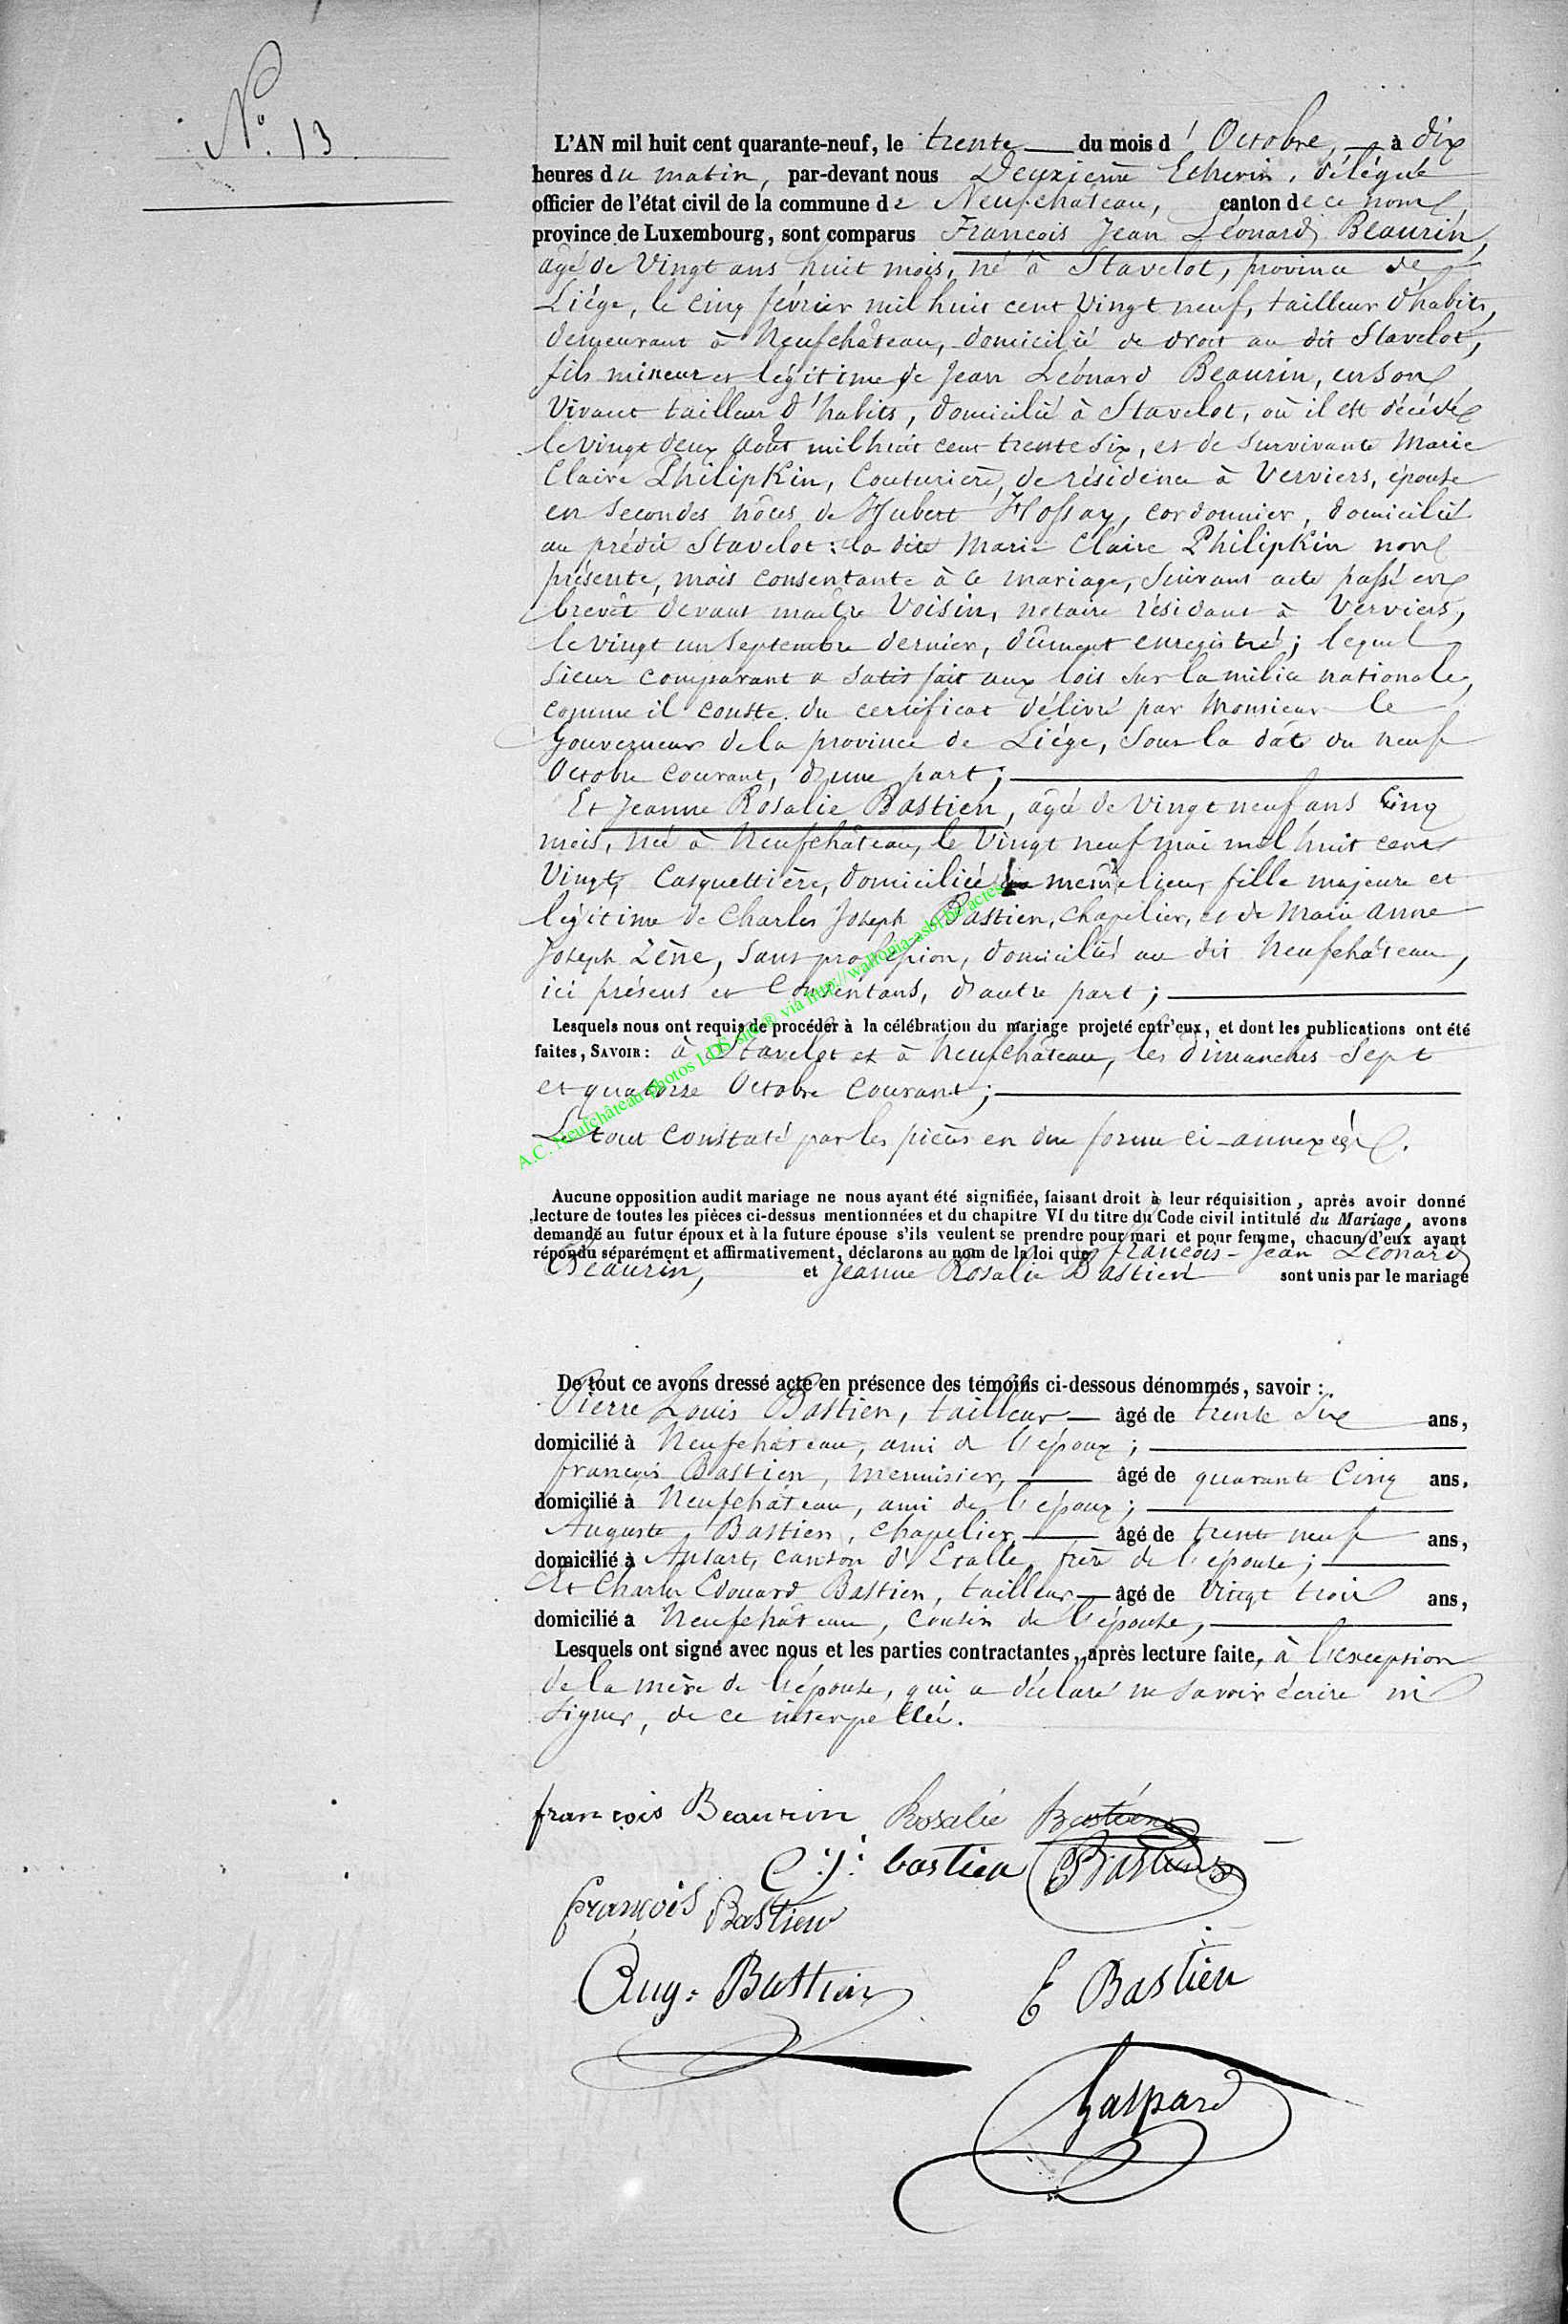 N.° 13
L'AN mil huit cent quarante-neuf, le trente du mois d'Octobre, à dix
heures du matin, par-devant nous Deuxième Echevin, délégué
officier de l'état civil de la commune de Neufchâteau, canton de ce nom
province de Luxembourg, sont comparus François Jean Léonard Beaurin,
âgé de Vingt ans huit mois, né à Stavelot, province de
Liége, le cinq février mil huit cent vingt neuf, tailleur d'habits,
demeurant à Neufchâteau, domicilié de droit au dit Stavelot,
fils mineur et légitime de Jean Léonard Beaurin, en son
vivant tailleur d'habits, domicilié à Stavelot, où il est décédé
le vingt deux août mil huit cent trente six, et de survivante Marie
Claire Philipkin, Couturière, de résidence à Verviers, épouse
en secondes nôces de Hubert Hossay, cordonnier, domicilié
au prédit Stavelot: la dite Marie Claire Philipkin non
présente, mais consentante à ce mariage, suivant acte passé en
brevêt devant maître Voisin, notaire résidant à Verviers,
le vingt un septembre dernier, dûment enregistré; lequel
sieur comparant a satisfait aux lois sur la milice nationale,
comme il conste du certificat délivré par Monsieur le
Gouverneur de la province de Liége, sous la date du neuf
Octobre courant, d'une part;
Et Jeanne Rosalie Bastien, âgée de vingt neuf ans cinq
mois, née à Neufchâteau, le vingt neuf mai mil huit cent
vingt, Casquettière, domiciliée même lieu, fille majeure et
légitime de Charles Joseph Bastien, chapelier, et de Marie Anne
Joseph Zène, sans profession, domiciliés au dit Neufchâteau,
ici présens et Consentans, d'autre part;
Lesquels nous ont requis de procéder à la célébration du mariage projeté entr'eux, et dont les publications ont été
faites, SAVOIR: à Stavelot et à Neufchâteau, les dimanches sept
et quatorze Octobre courant;
Le tout constaté par les pièces en due forme ci-annexées.
A.C. Neufchâteau photos LDS site® via http://wallonia-asbl.be actes
Aucune opposition audit mariage ne nous ayant été signifiée, faisant droit à leur réquisition, après avoir donné
lecture de toutes les pièces ci-dessus mentionnées et du chapitre VI du titre du Code civil intitulé du Mariage, avons
demandé au futur époux et à la future épouse s'ils veulent se prendre pour mari et pour femme, chacun d'eux ayant
répondu séparément et affirmativement, déclarons au nom de la loi que François-Jean Léonard
Beaurin, et Jeanne Rosalie Bastien sont unis par le mariage
De tout ce avons dressé acte en présence des témoins ci-dessous dénommés, savoir:
Pierre Louis Bastien, tailleur âgé de trente six ans,
domicilié à Neufchâteau, ami de l'époux;
françois Bastien, menuisier, âgé de quarante cinq ans,
domicilié à Neufchâteau, ami de l'époux;
Auguste Bastien, chapelier âgé de trente neuf ans,
domicilié à Ansart, canton d'Etalle, frère de l'épouse;
Et Charles Edouard Bastien, tailleur âgé de vingt trois ans,
domicilié à Neufchâteau, cousin de l'épouse,
Lesquels ont signé avec nous et les parties contractantes, après lecture faite, à l'exception
de la mère de l'épouse, qui a déclaré ne savoir écrire ni
signer, de ce interpellée.
françois Beaurin Rosalie Bastien
C. J. bastien Bastien
françois Bastien
Aug. Bastien E Bastien
Gaspard